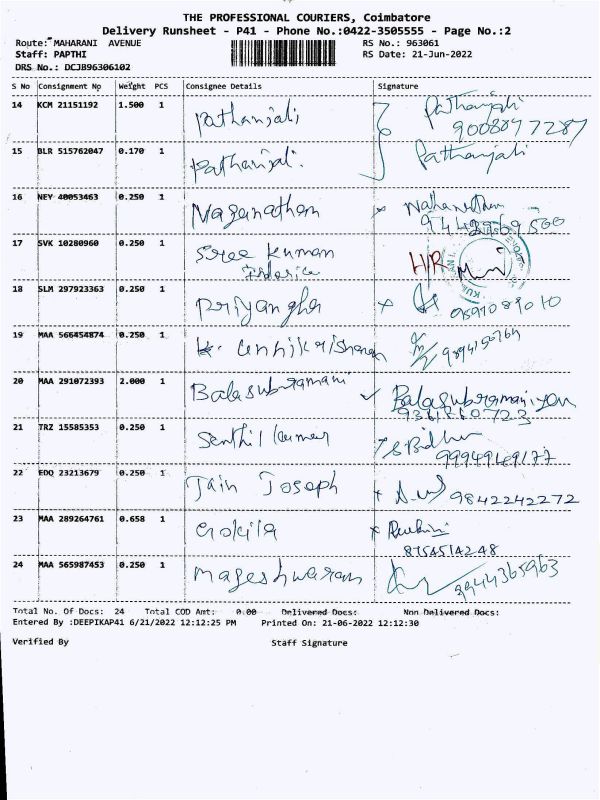 THE PROFESSIONAL COURIERS, Coimbatore
Delivery Runsheet - P41 - Phone No.:0422-3505555 - Page No.:2
Route: MAHARANI AVENUE
RS No.: 963061
Staff: PAPTHI
RS Date: 21-Jun-2022
DRS No.: DCJB96306102
S No Consignment No Weight PCS Consignee Details Signature
14 KCM 21151192 1.500 1 Pathanjali Pathanjali
9008097287
15 BLR 515762047 0.170 1 Pathanjali. Pathanjali
16 NEY 40053463 0.250 1 Naganathan
17 SVK 10280960 0.250 1 Sree Kumar H/R
18 SLM 297923363 0.250 1 Priyangha
19 MAA 566454874 0.250 1 K. Unnikrishnan
20 MAA 291072393 2.000 1 Balasubramani Balasubramaniyan
9361860723
21 TRZ 15585353 0.250 1 Senthil kumar
22 EDQ 23213679 0.250 1 Jain Joseph 9842242272
23 MAA 289264761 0.658 1 Gokila
8754514248
24 MAA 565987453 0.250 1 Mageshwaran 9944365963
Total No. Of Docs: 24 Total COD Amt: 0.00 Delivered Docs: Non Delivered Docs:
Entered By :DEEPIKAP41 6/21/2022 12:12:25 PM Printed On: 21-06-2022 12:12:30
Verified By Staff Signature